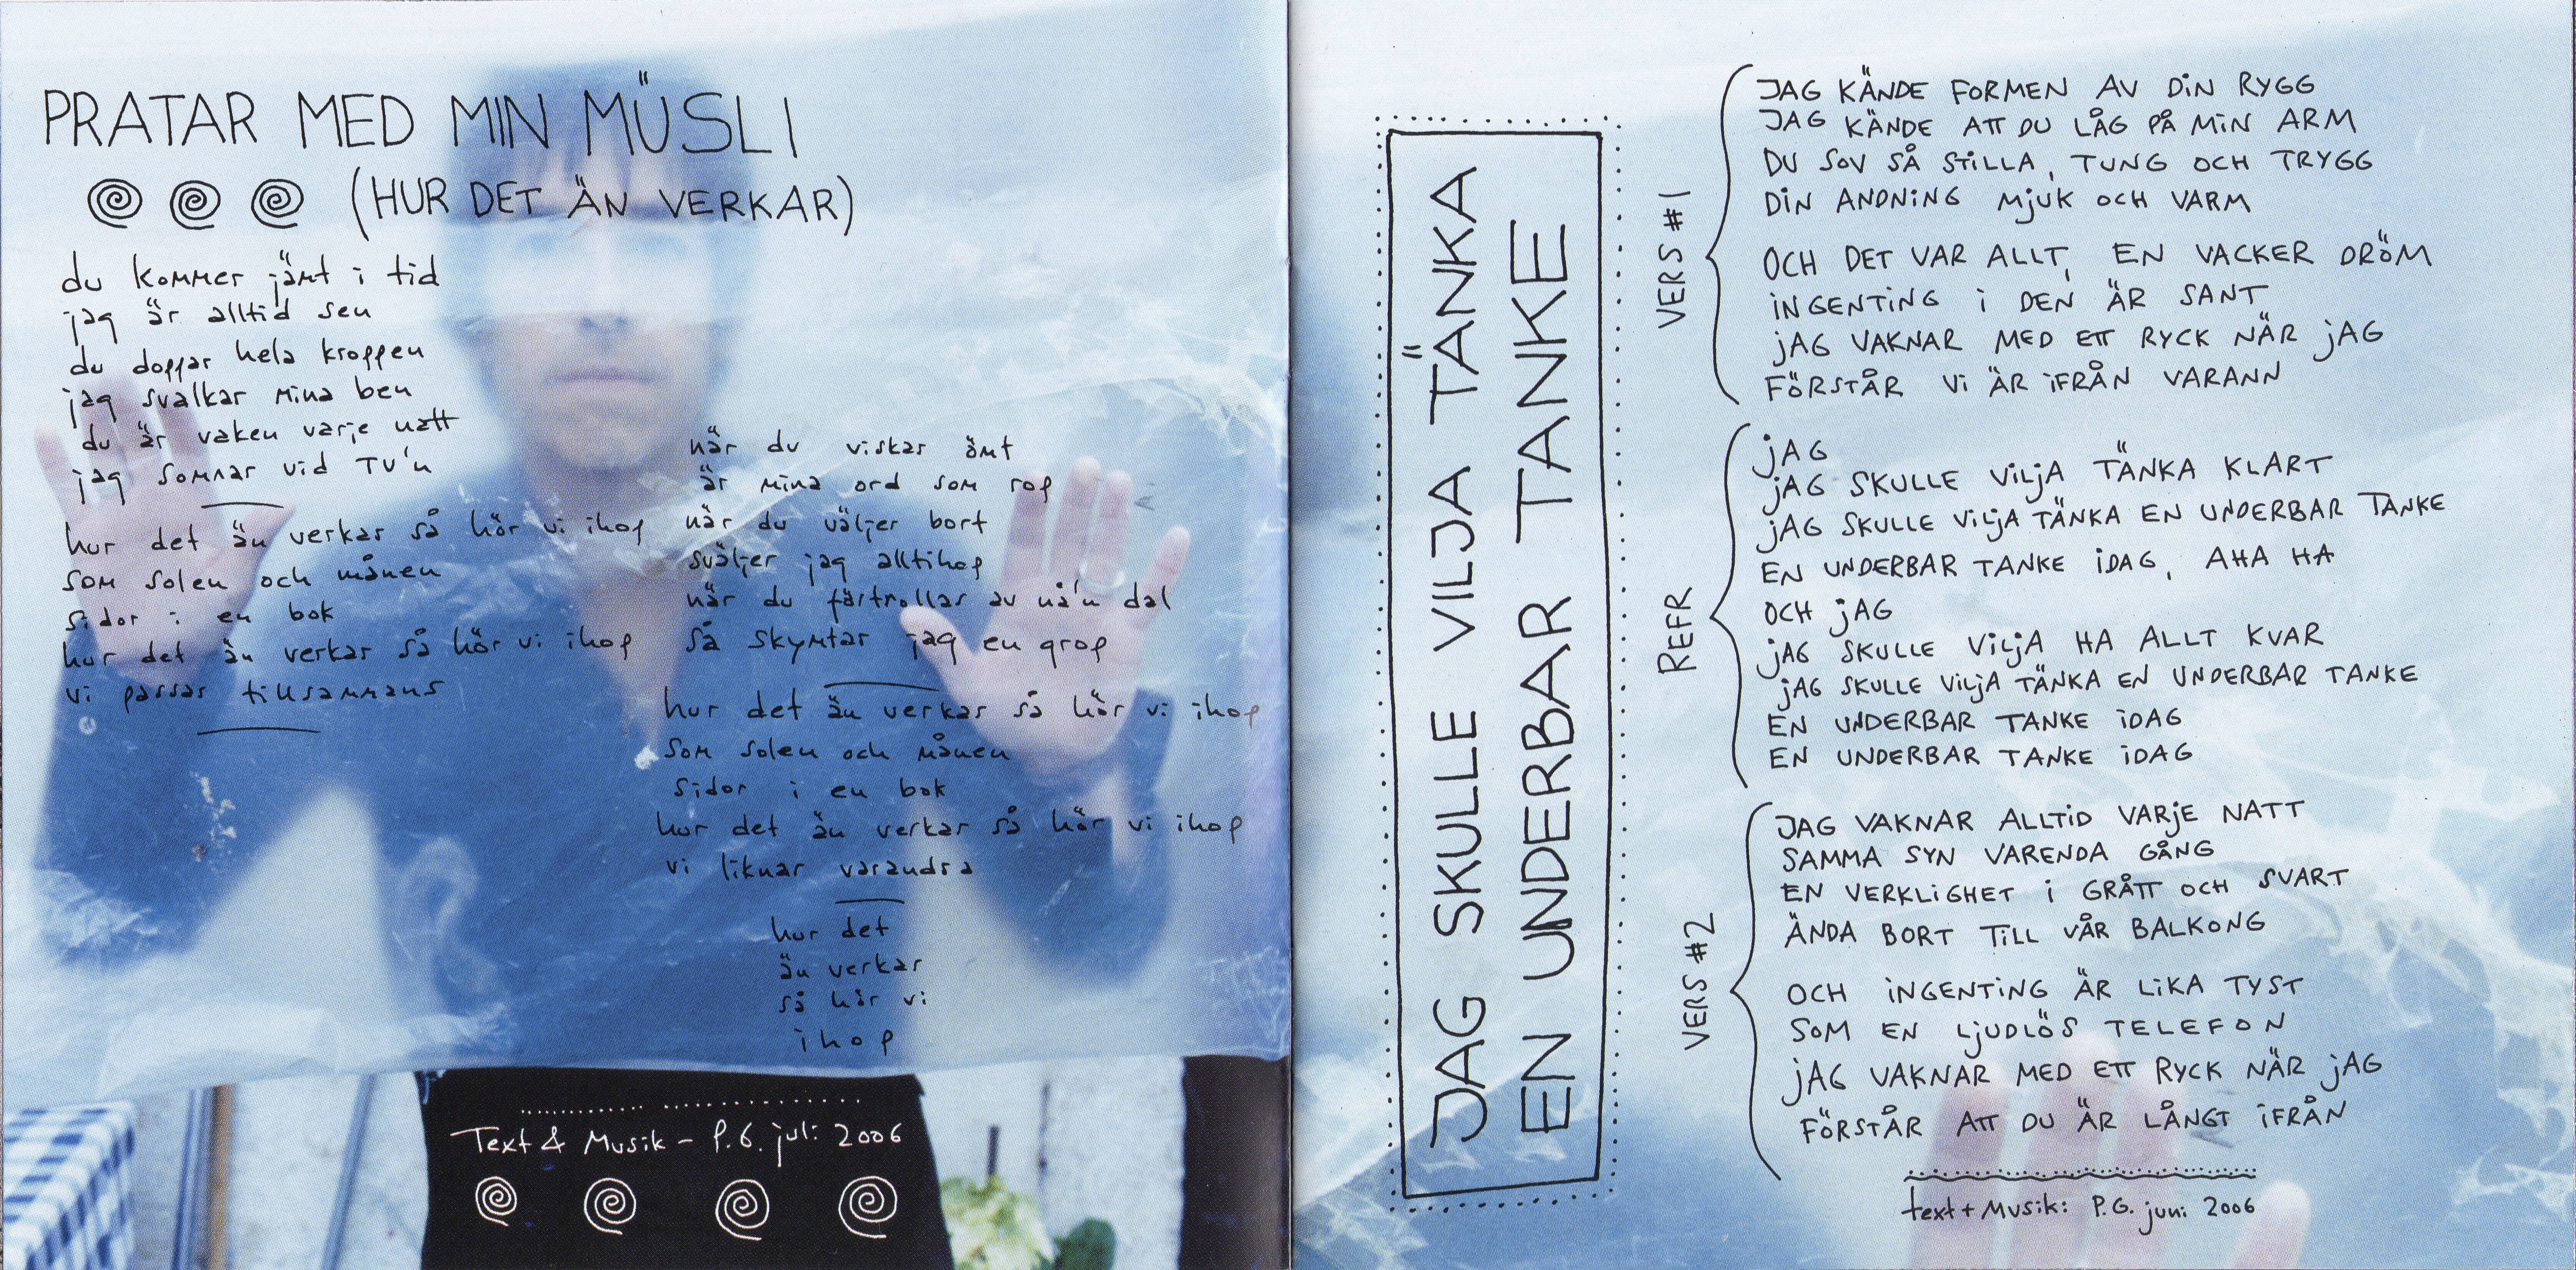 PRATAR MED MIN MÜSLI
(HUR DET ÄN VERKAR)
du kommer jämt i tid
jag är alltid sen
du doppar hela kroppen
jag svalkar mina ben
du är vaken varje natt
jag somnar vid TV'n
hur det än verkar så hör vi ihop
som solen och månen
sidor i en bok
hur det än verkar så hör vi ihop
vi passar tillsammans
när du viskar ömt
är mina ord som rop
när du väljer bort
sväljer jag alltihop
när du färtrollas av nå'n dal
så skymtar jag en grop
hur det än verkar så hör vi ihop
som solen och månen
sidor i en bok
hur det än verkar så hör vi ihop
vi liknar varandra
hur det
än verkar
så hör vi
ihop
Text & Musik – P.G. juli 2006
JAG SKULLE VILJA TÄNKA
EN UNDERBAR TANKE
VERS #1
JAG KÄNDE FORMEN AV DIN RYGG
JAG KÄNDE ATT DU LÅG PÅ MIN ARM
DU SOV SÅ STILLA, TUNG OCH TRYGG
DIN ANDNING MJUK OCH VARM
OCH DET VAR ALLT, EN VACKER DRÖM
INGENTING I DEN ÄR SANT
JAG VAKNAR MED ETT RYCK NÄR JAG
FÖRSTÅR VI ÄR IFRÅN VARANN
REFR
JAG
JAG SKULLE VILJA TÄNKA KLART
JAG SKULLE VILJA TÄNKA EN UNDERBAR TANKE
EN UNDERBAR TANKE IDAG, AHA HA
OCH JAG
JAG SKULLE VILJA HA ALLT KVAR
JAG SKULLE VILJA TÄNKA EN UNDERBAR TANKE
EN UNDERBAR TANKE IDAG
EN UNDERBAR TANKE IDAG
VERS #2
JAG VAKNAR ALLTID VARJE NATT
SAMMA SYN VARENDA GÅNG
EN VERKLIGHET I GRÅTT OCH SVART
ÄNDA BORT TILL VÅR BALKONG
OCH INGENTING ÄR LIKA TYST
SOM EN LJUDLÖS TELEFON
JAG VAKNAR MED ETT RYCK NÄR JAG
FÖRSTÅR ATT DU ÄR LÅNGT IFRÅN
text + Musik: P.G. juni 2006